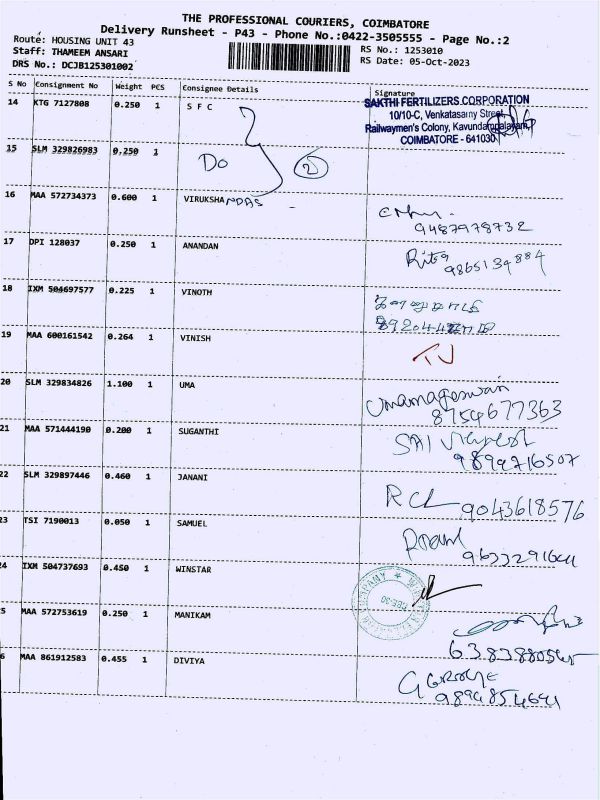 THE PROFESSIONAL COURIERS, COIMBATORE
Delivery Runsheet - P43 - Phone No.:0422-3505555 - Page No.:2
Route: HOUSING UNIT 43
Staff: THAMEEM ANSARI
DRS No.: DCJB125301002
RS No.: 1253010
RS Date: 05-Oct-2023
S No Consignment No Weight PCS Consignee Details Signature
14 KTG 7127808 0.250 1 S F C
SAKTHI FERTILIZERS CORPORATION
10/10-C, Venkatasamy Street,
Railwaymen's Colony, Kavundampalayam,
COIMBATORE - 641030
15 SLM 329826983 0.250 1 Do 2
16 MAA 572734373 0.600 1 VIRUKSHA NDAS
9487978732
17 DPI 128037 0.250 1 ANANDAN
Rita
9865134884
18 IXM 504697577 0.225 1 VINOTH
19 MAA 600161542 0.264 1 VINISH
TJ
20 SLM 329834826 1.100 1 UMA
Umamageswari
8754677363
21 MAA 571444190 0.200 1 SUGANTHI
SAI
9899716507
22 SLM 329897446 0.460 1 JANANI
9043618576
23 TSI 7190013 0.050 1 SAMUEL
9633291641
24 IXM 504737693 0.450 1 WINSTAR
5 MAA 572753619 0.250 1 MANIKAM
6 MAA 861912583 0.455 1 DIVIYA
9894854641